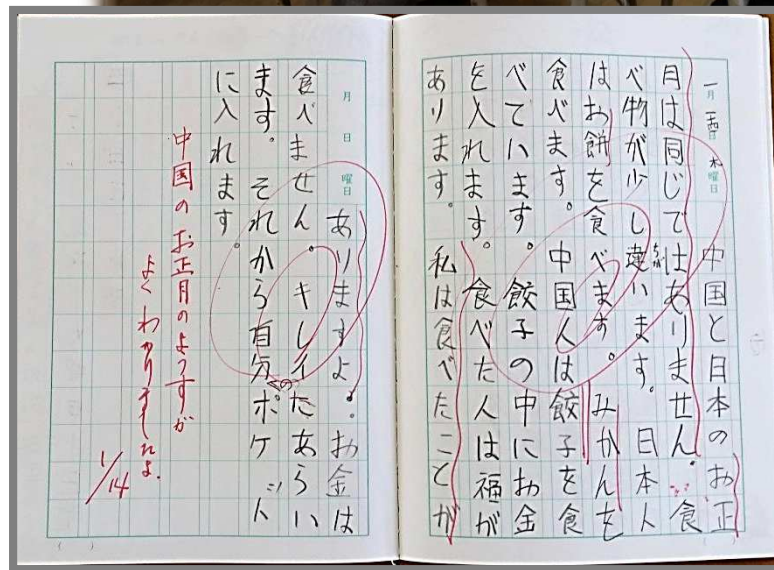 一月十四日木曜日
中国と日本のお正
月は同じではありません。食
べ物が少し違います。日本人
はお餅を食べます。みかんを
食べます。中国人は餃子を食
べています。餃子の中にお金
を入れます。食べた人は福が
あります。私は食べたことが
月 日 曜日
ありますよ。お金は
食べません。キレイたあらい
ます。それから自分のポケット
に入れます。
中国のお正月のようすが
よくわかりましたよ。
1/14